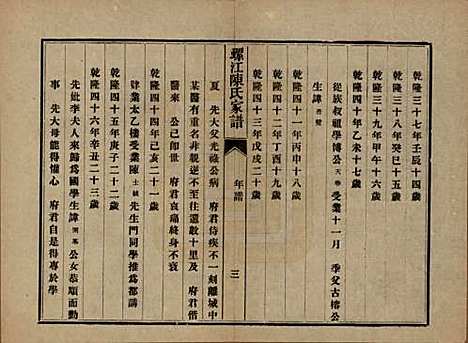 乾隆三十七年壬辰十四歲
乾隆三十八年癸巳十五歲
乾隆三十九年甲午十六歲
乾隆四十年乙未十七歲
從族叔祖學博公天春受業十一月 季父古榕公
生諱
乾隆四十一年丙申十八歲
乾隆四十二年丁酉十九歲
乾隆四十三年戊戌二十歲
螺江陳氏家譜
年譜
三
夏 先大父光祿公病 府君侍疾不一刻離城中
某醫有重名非親逆不至往還數十里及 府君偕
醫來 公已卽世 府君哀痛終身不衰
乾隆四十四年己亥二十一歲
肄業太乙樓受業陳士 先生門同學推爲都講
乾隆四十五年庚子二十二歲
乾隆四十六年辛丑二十三歲
先妣李夫人來歸爲國學生諱 公女恭順而勤
事 先大母能得懽心 府君自是得專於學